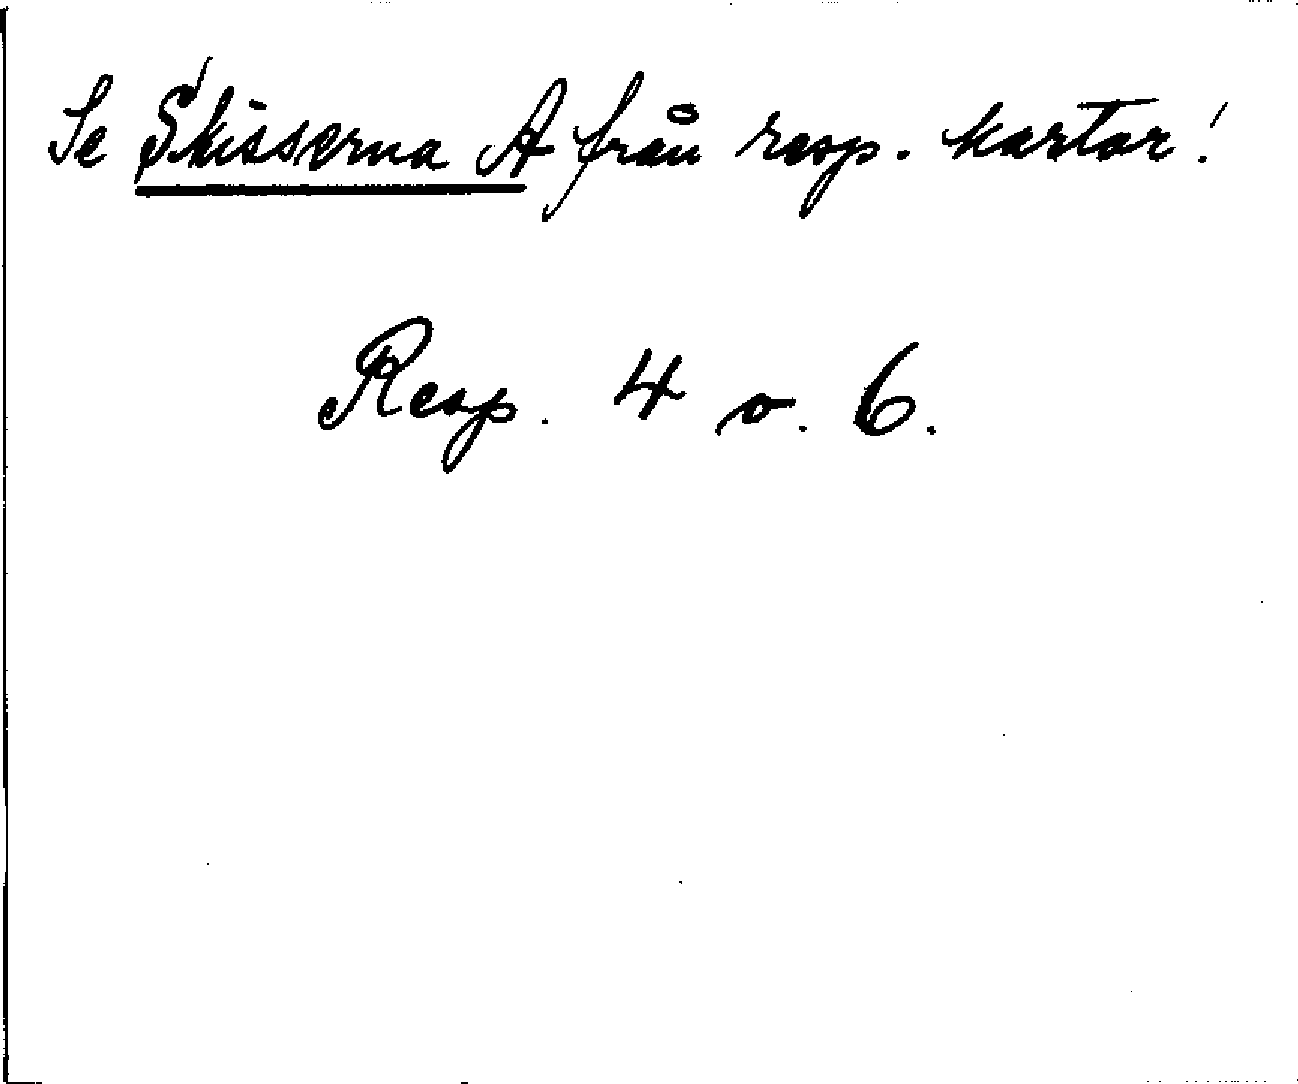 Se Skisserna A från resp. kartor!
Resp. 4 o. 6.